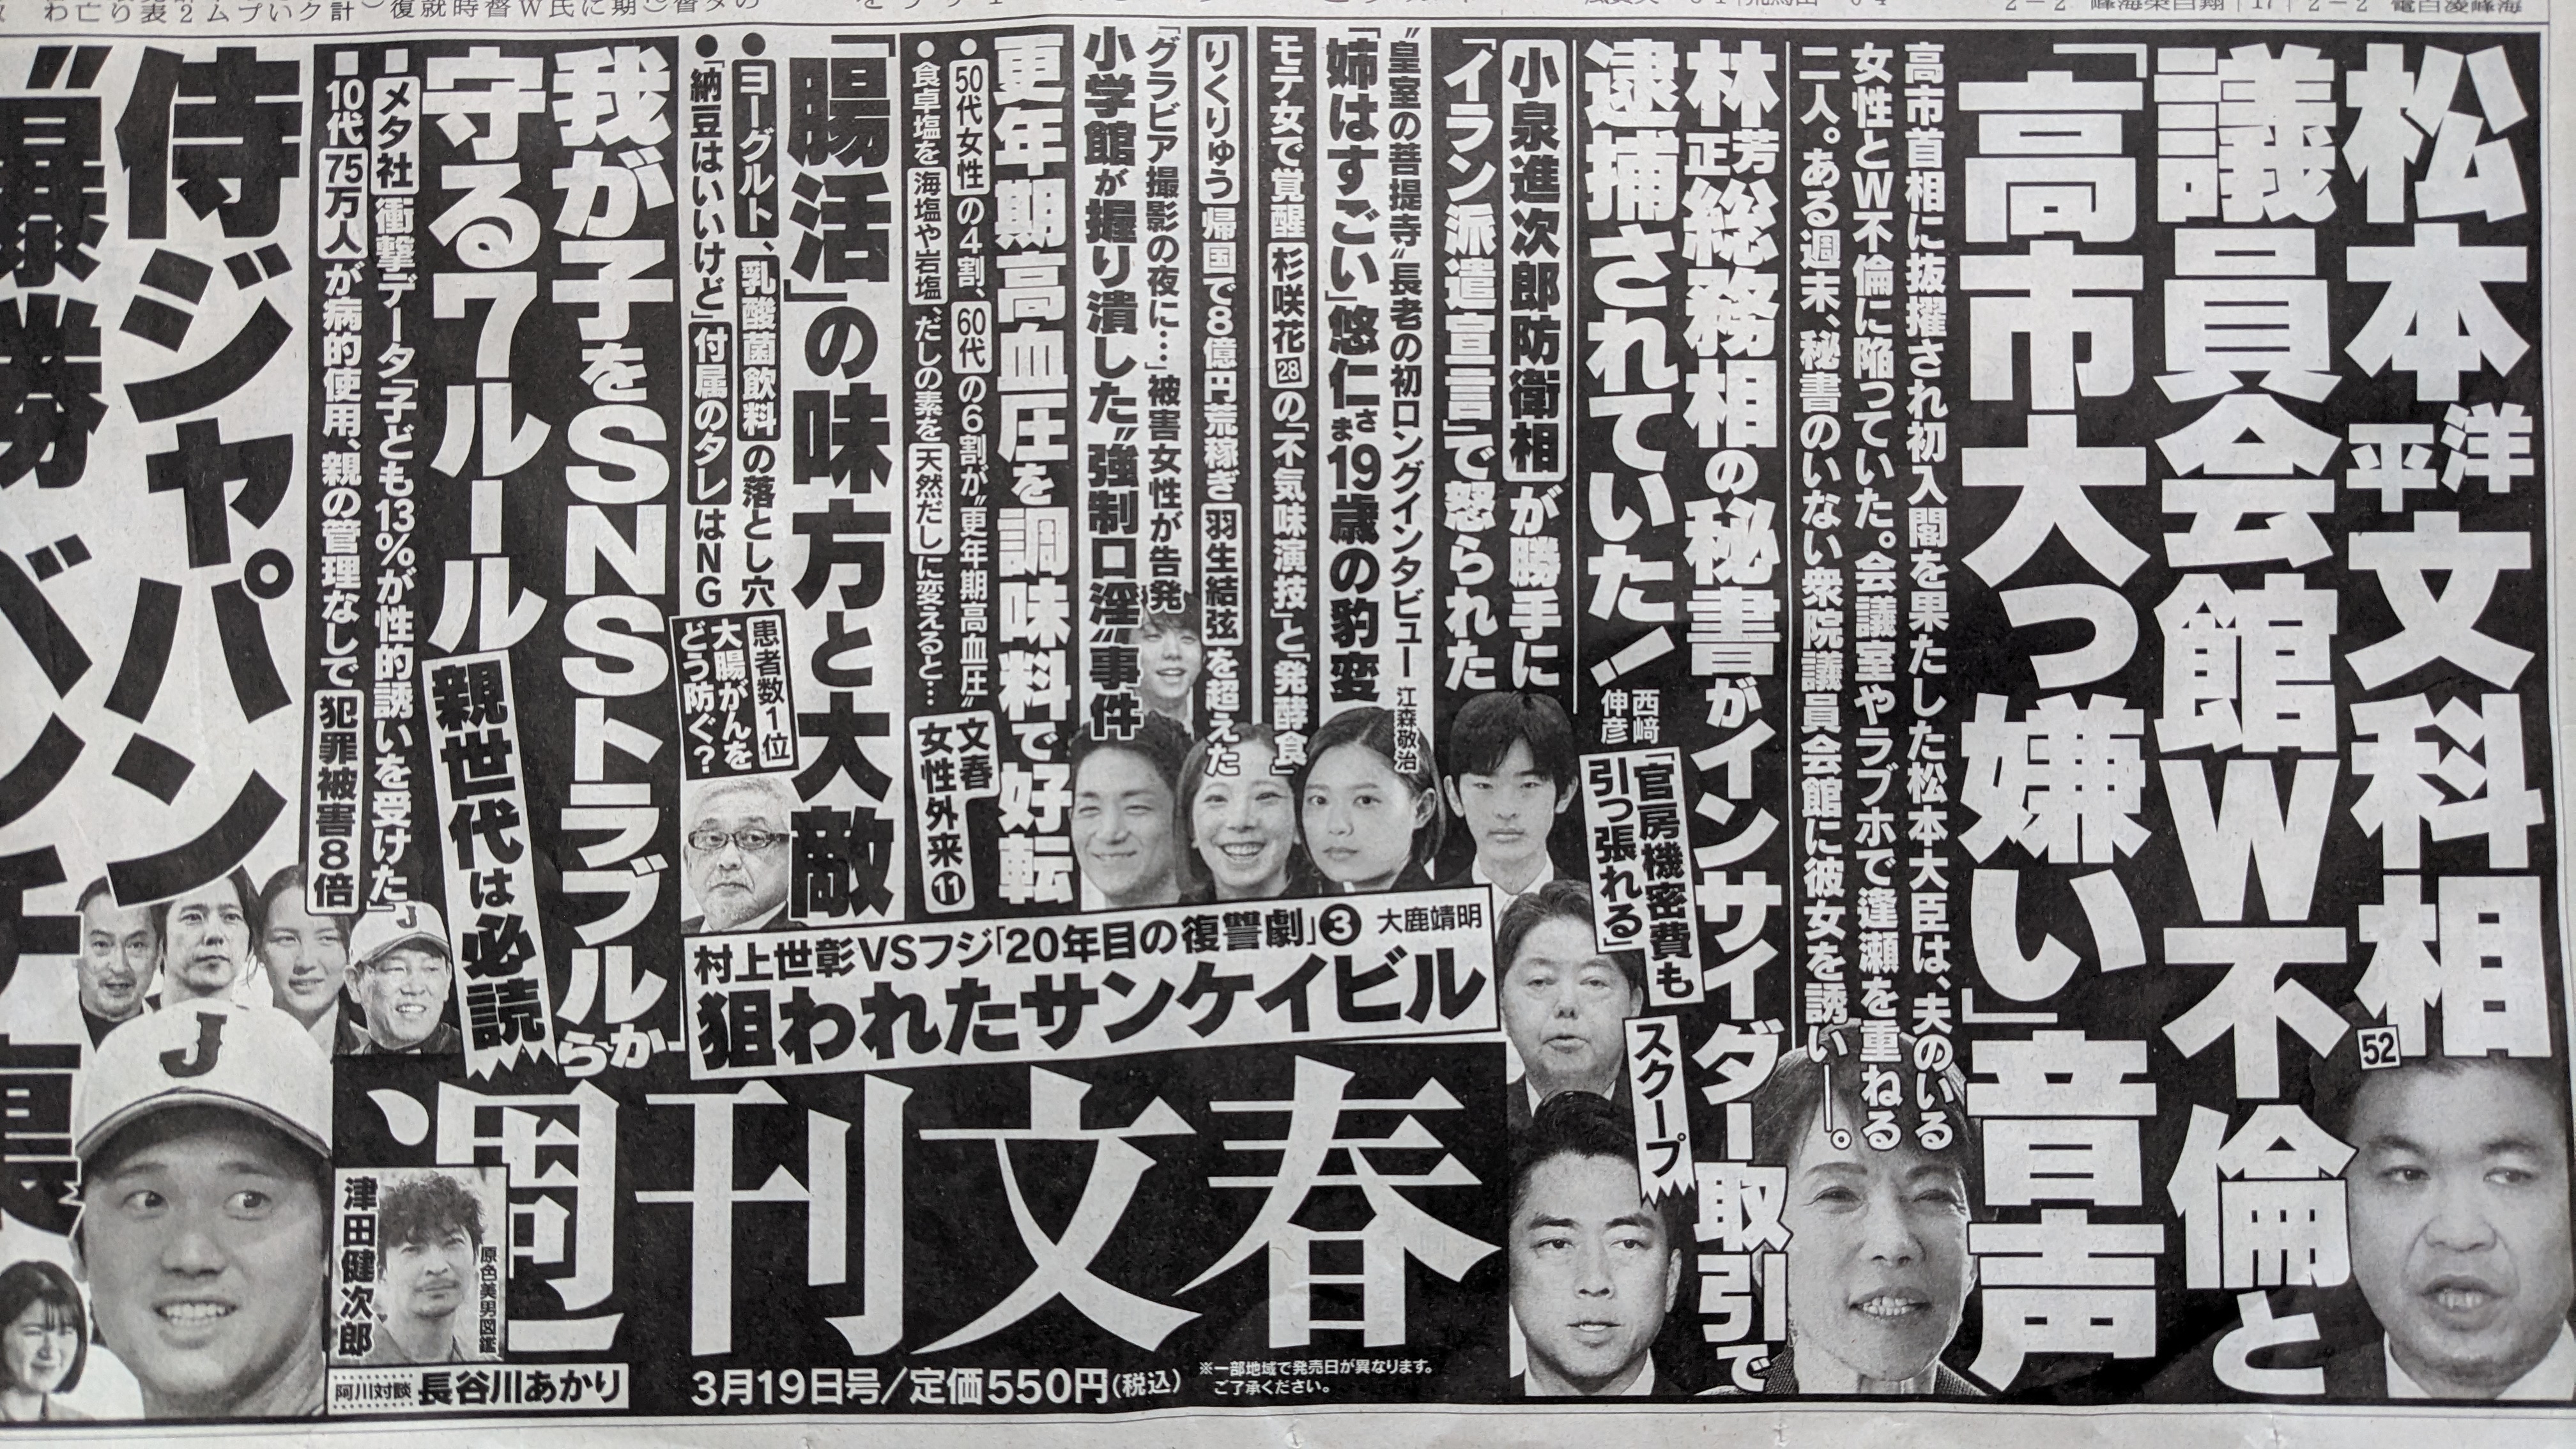 松本洋平文科相52
議員会館W不倫と
「高市大っ嫌い」音声
高市首相に抜擢され初入閣を果たした松本大臣は、夫のいる
女性とW不倫に陥っていた。会議室やラブホで逢瀬を重ねる
二人。ある週末、秘書のいない衆院議員会館に彼女を誘い――。
林芳正総務相の秘書がインサイダー取引で
逮捕されていた!
スクープ
「官房機密費も
引っ張れる」
西﨑伸彦
小泉進次郎防衛相が勝手に
「イラン派遣宣言」で怒られた
“皇室の菩提寺”長老の初ロングインタビュー 江森敬治
「姉はすごい」悠仁さま19歳の豹変
モテ女で覚醒 杉咲花28の「不気味演技」と「発酵食」
りくりゅう帰国で8億円荒稼ぎ 羽生結弦を超えた
「グラビア撮影の夜に…」被害女性が告発
小学館が握り潰した“強制口淫”事件
更年期高血圧を調味料で好転
●50代女性の4割、60代の6割が“更年期高血圧”
●食卓塩を海塩や岩塩、だしの素を天然だしに変えると…
文春
女性外来⓫
「腸活」の味方と大敵
●ヨーグルト、乳酸菌飲料の落とし穴
●「納豆はいいけど」付属のタレはNG
患者数1位
大腸がんを
どう防ぐ?
村上世彰VSフジ「20年目の復讐劇」❸ 大鹿靖明
狙われたサンケイビル
我が子をSNSトラブルから
守る7ルール
親世代は必読
■メタ社衝撃データ「子ども13%が性的誘いを受けた」
■10代75万人が病的使用、親の管理なしで犯罪被害8倍
侍ジャパン
週刊文春
原色美男図鑑
津田健次郎
阿川対談 長谷川あかり
3月19日号/定価550円(税込)
※一部地域で発売日が異なります。
ご了承ください。